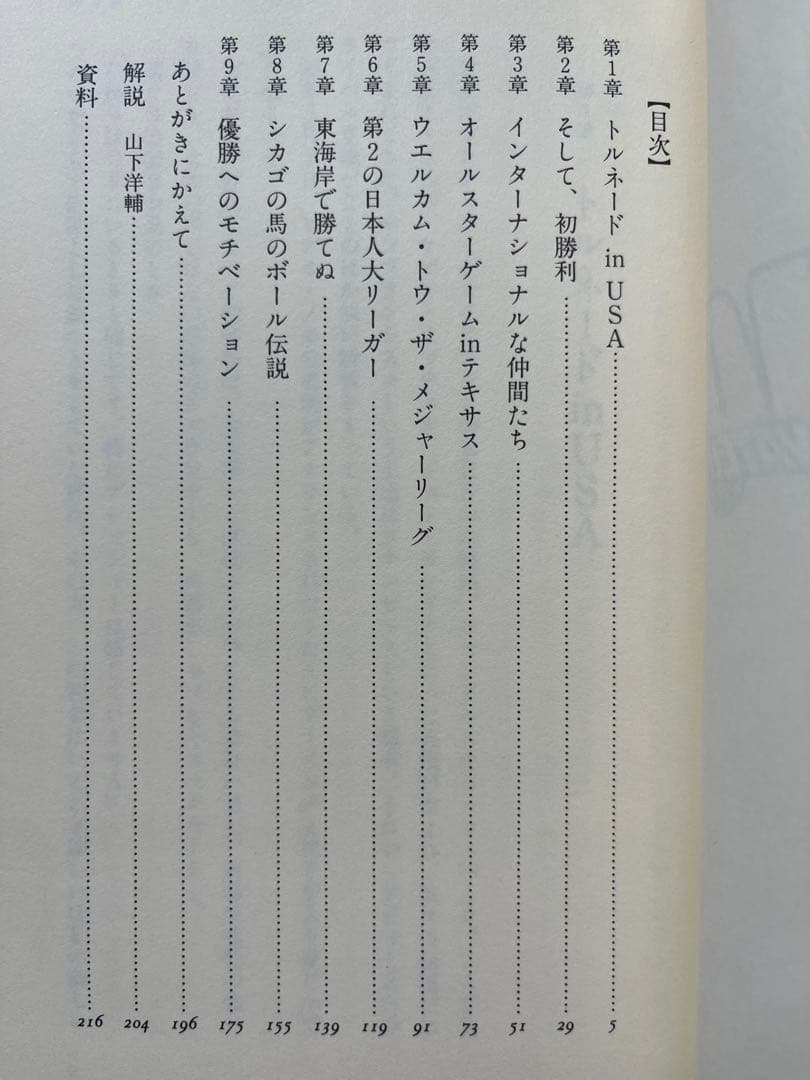 【目次】
第1章 トルネード in USA 5
第2章 そして、初勝利 29
第3章 インターナショナルな仲間たち 51
第4章 オールスターゲームinテキサス 73
第5章 ウエルカム・トウ・ザ・メジャーリーグ 91
第6章 第2の日本人大リーガー 119
第7章 東海岸で勝てぬ 139
第8章 シカゴの馬のボール伝説 155
第9章 優勝へのモチベーション 175
あとがきにかえて 196
解説 山下洋輔 204
資料 216